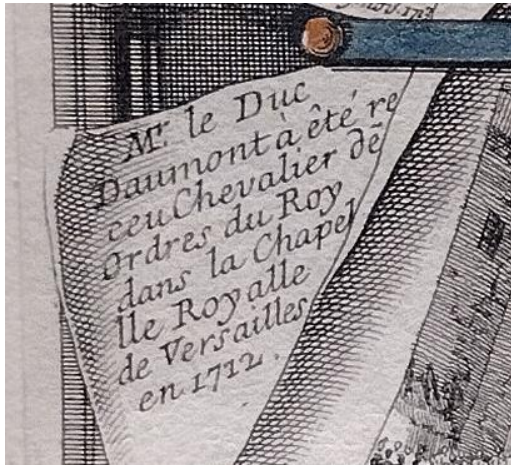 Mr. le Duc
Daumont à été re
ceu Chevalier dẽ
Ordres du Roy
dans la Chapel
lle Royalle
de Versailles
en 1712.